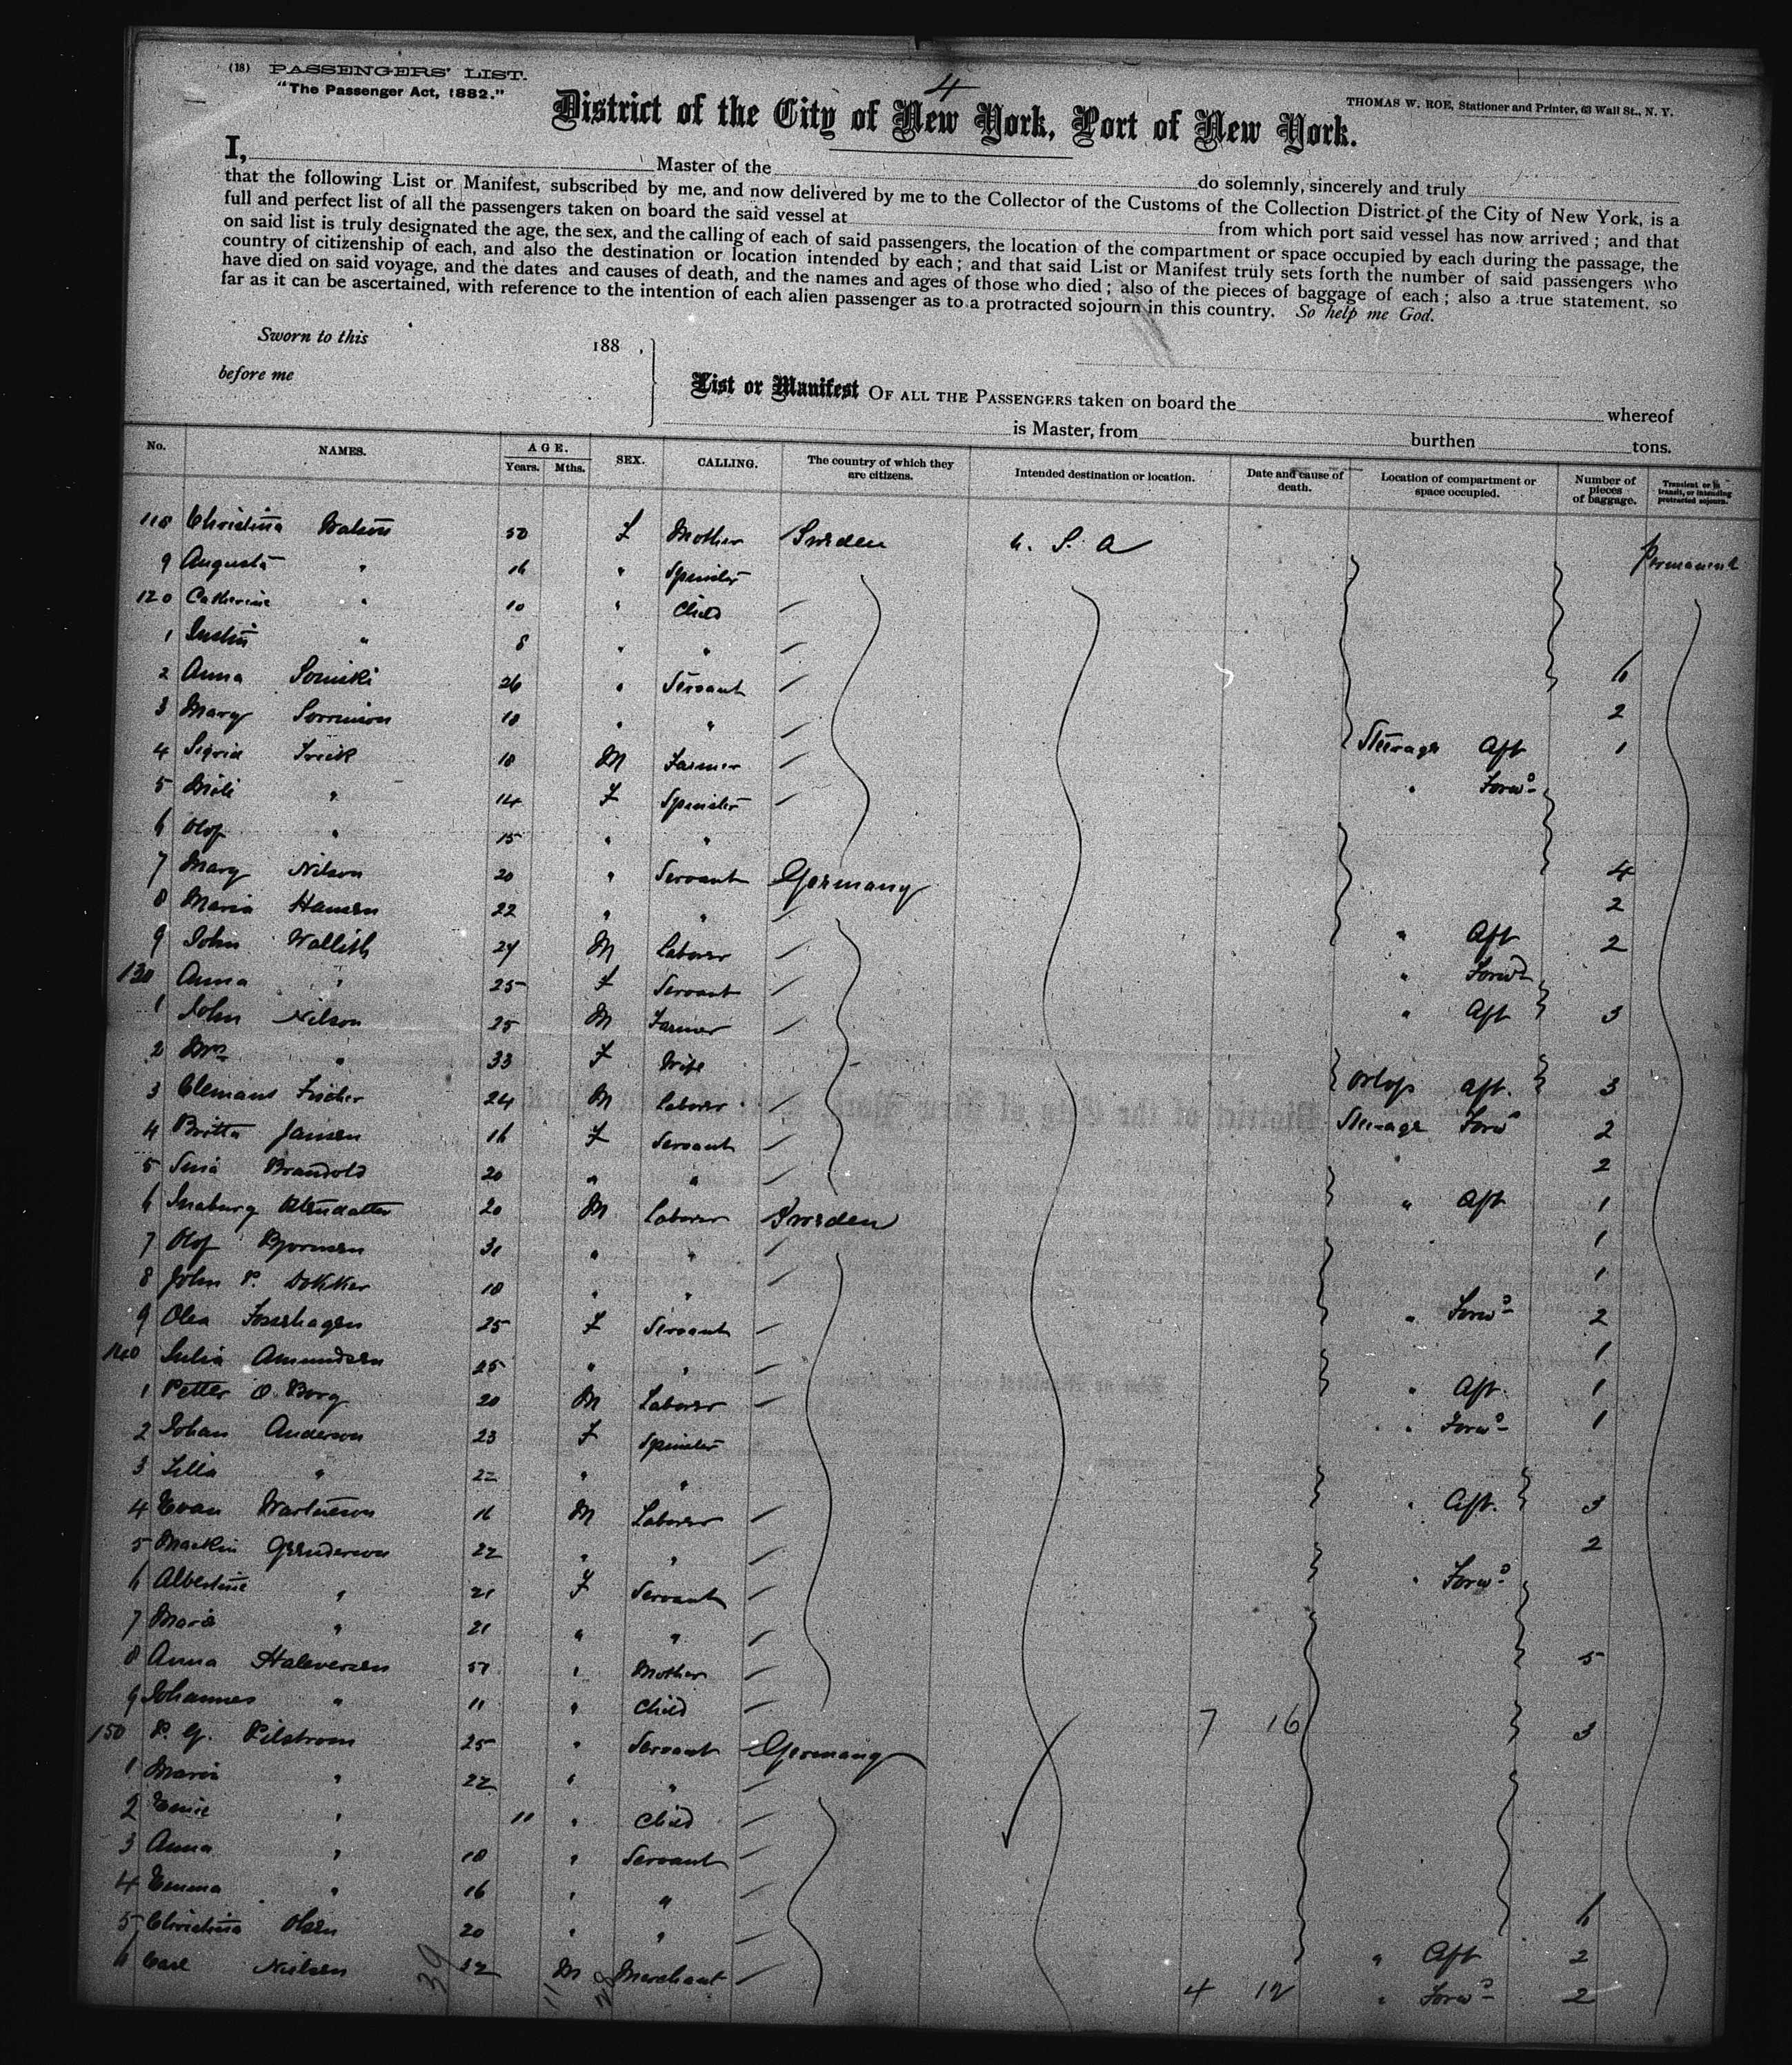 4
(18) PASSENGERS' LIST.
"The Passenger Act, 1882."
THOMAS W. ROE, Stationer and Printer, 63 Wall St., N. Y.
District of the City of New York, Port of New York.
I, Master of the do solemnly, sincerely and truly
that the following List or Manifest, subscribed by me, and now delivered by me to the Collector of the Customs of the Collection District of the City of New York, is a
full and perfect list of all the passengers taken on board the said vessel at from which port said vessel has now arrived; and that
on said list is truly designated the age, the sex, and the calling of each of said passengers, the location of the compartment or space occupied by each during the passage, the
country of citizenship of each, and also the destination or location intended by each; and that said List or Manifest truly sets forth the number of said passengers who
have died on said voyage, and the dates and causes of death, and the names and ages of those who died; also of the pieces of baggage of each; also a true statement, so
far as it can be ascertained, with reference to the intention of each alien passenger as to a protracted sojourn in this country. So help me God.
Sworn to this 188 ,
before me
List or Manifest OF ALL THE PASSENGERS taken on board the whereof
is Master, from burthen tons.
No. NAMES. AGE. Years. Mths. SEX. CALLING. The country of which they are citizens. Intended destination or location. Date and cause of death. Location of compartment or space occupied. Number of pieces of baggage. Transient or in transit, or intending protracted sojourn.
118 Christina 50 F Mother Sweden U. S. A Permanent
9 Augusta " 16 " Spinster
120 Catherine " 10 " Child
1 " 8 " "
2 Anna 26 " Servant 6
3 Mary 18 " " 2
4 18 M Farmer Steerage Aft 1
5 " 14 F Spinster " Forwd
6 Olof " 15 " "
7 Mary Nilson 20 " Servant Germany 4
8 Maria Hansen 22 " " 2
9 John Wallith 24 M Laborer " Aft 2
130 Anna " 25 F Servant " Forwd
1 John Nilson 25 M Farmer " Aft 3
2 Mrs " 33 F Wife
3 Clemans Fischer 24 M Laborer Orlop Aft. 3
4 Britta Jansen 16 F Servant Steerage Forwd 2
5 20 " " " 2
6 20 M Laborer Sweden " Aft 1
7 Olof 31 " " 1
8 John P. 18 " " 1
9 Olea 25 F Servant " Forwd 2
140 Julia Amundsen 25 " " 1
1 Petter O. Borg 20 M Laborer " Aft. 1
2 Johan Anderson 23 F Spinster " Forwd 1
3 " 22 " "
4 Evan 16 M Laborer " Aft. 3
5 22 " " 2
6 Albertine " 21 F Servant " Forwd
7 Marie " 21 " "
8 Anna Halversen 57 " Mother 5
9 Johannes " 11 " Child
150 P. G. Pilstrom 25 " Servant Germany 7 16 3
1 Maria " 22 " "
2 " 11 " Child
3 Anna " 18 " Servant
4 Emma " 16 " "
5 Christina Olsen 20 " " 6
6 Carl Nielsen 22 M Merchant " Aft 2
39 11 28 4 12 " Forwd 2